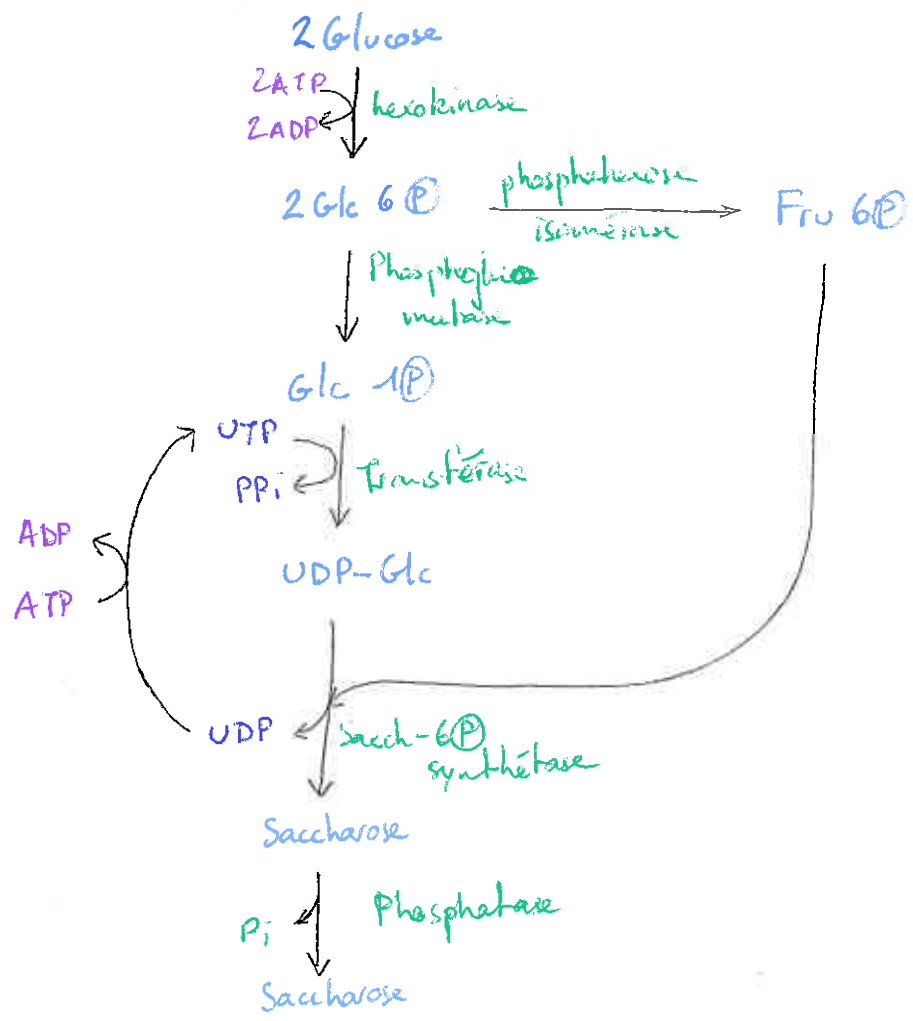 2 Glucose
2ATP
hexokinase
2ADP
2 Glc 6 P
phosphohexose
isomérase
Fru 6 P
Phosphogluco
mutase
Glc 1 P
UTP
PPi
Transférase
ADP
ATP
UDP-Glc
UDP
Sacch-6 P
synthétase
Saccharose
Pi
Phosphatase
Saccharose